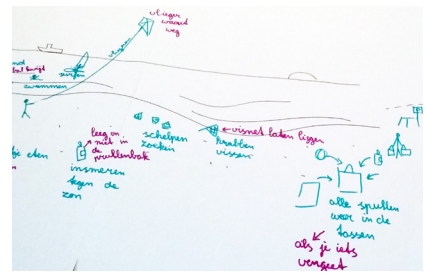 vlieger
waait
weg
vliegeren
surfen
zwemmen
eten
leeg en
niet in
de
prullenbak
insmeren
tegen de
zon
schelpen
zoeken
visnet laten liggen
krabben
vissen
alle spullen
weer in de
tassen
als je iets
vergeet